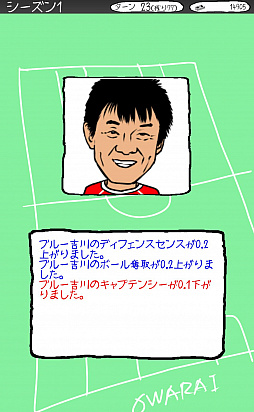 シーズン1
ターン 23(残り77)
14905
ブルー吉川のディフェンスセンスが0.2
上がりました。
ブルー吉川のボール奪取が0.2上がりま
した。
ブルー吉川のキャプテンシーが0.1下が
りました。
OWARAI